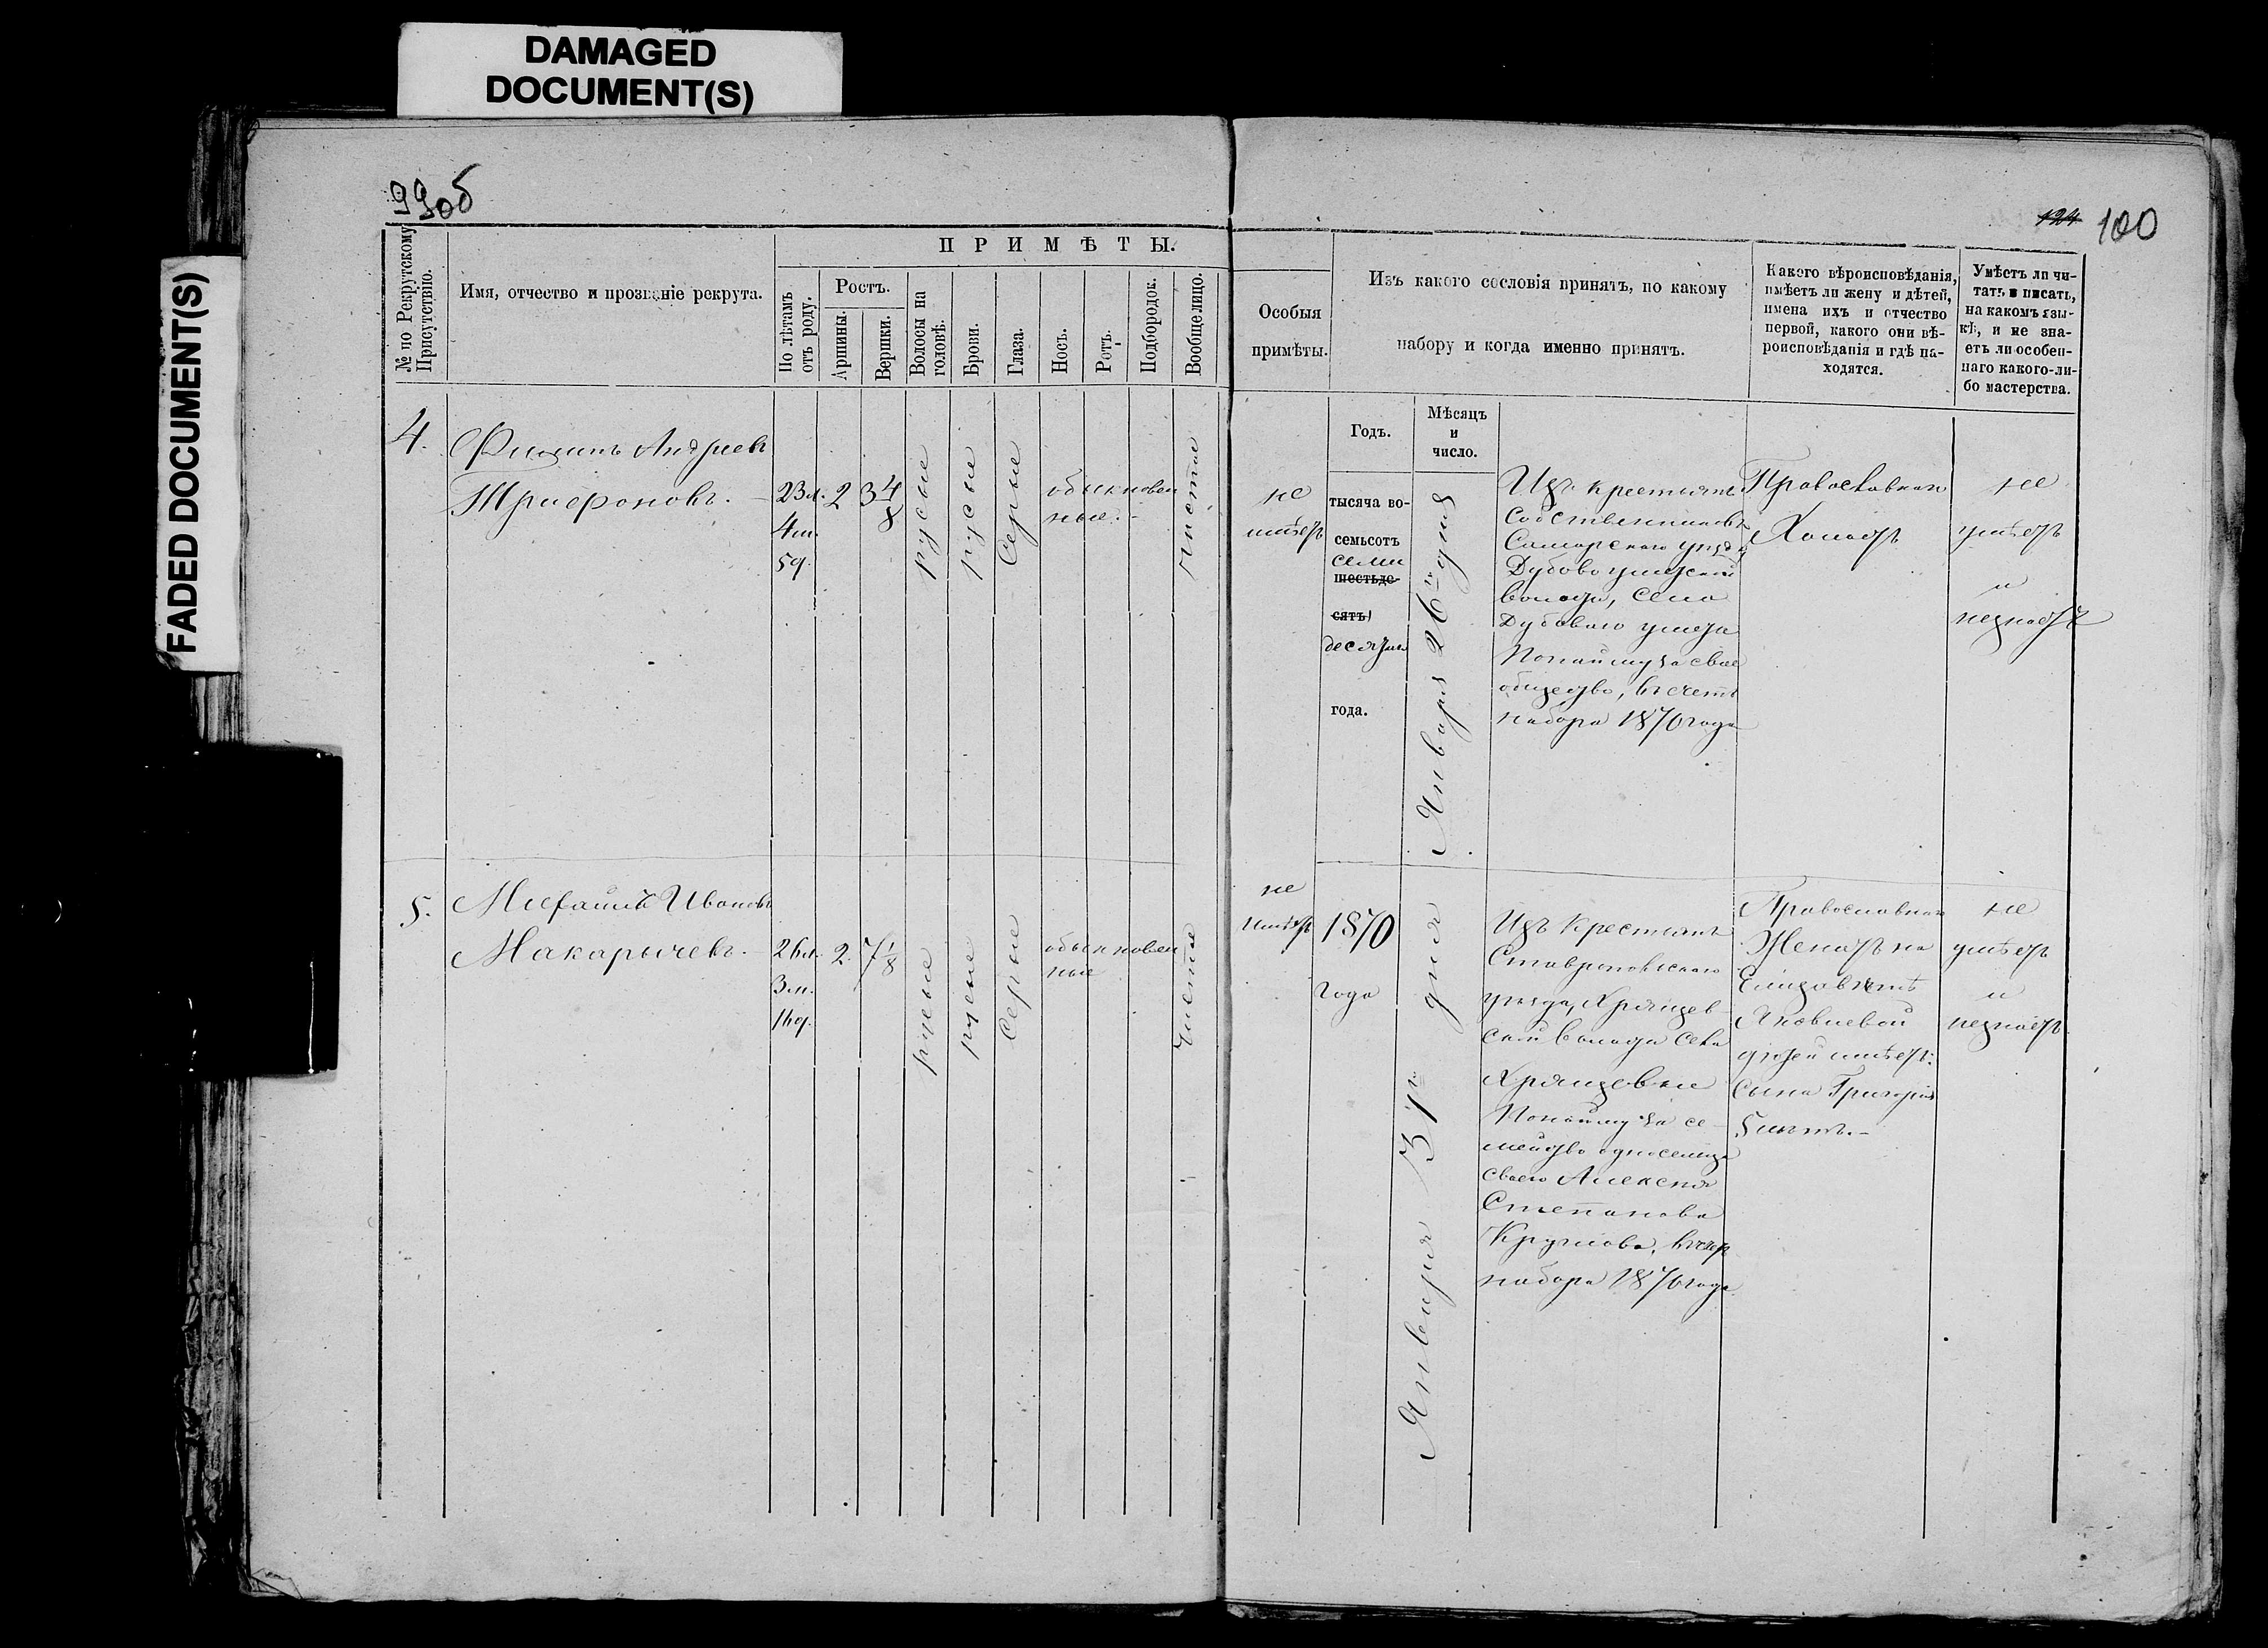 DAMAGED
DOCUMENT(S)
FADED DOCUMENT(S)
99об
124 100
№ по Рекрутскому
Присутствію.
Имя, отчество и прозваніе рекрута.
ПРИМѢТЫ.
По лѣтамъ
отъ роду.
Ростъ.
Аршины.
Вершки.
Волосы на
головѣ.
Брови.
Глаза.
Носъ.
Ротъ.
Подбородок.
Вообще лицо.
Особыя
примѣты.
Изъ какого сословія принятъ, по какому
набору и когда именно принятъ.
Какого вѣроисповѣданія,
имѣетъ ли жену и дѣтей,
имена ихъ и отчество
первой, какого они вѣ-
роисповѣданія и гдѣ на-
ходятся.
Умѣетъ ли чи-
тать и писать,
на какомъ язы-
кѣ, и не зна-
етъ ли особен-
наго какого-ли-
бо мастерства.
Годъ.
Мѣсяцъ
и
число.
4.
Филипъ Андреевъ
Трифоновъ.
23 л.
4 м.
5 д.
2
3 4/8
русые
русые
Серые
обыкновен
ные.
чистое
не
имѣетъ
тысяча во-
семьсотъ
семи
шестьде-
сятъ
десятаго
года.
Января 26го дня
Изъ крестьянъ
собственниковъ
Самарскаго уѣзда
Дубовоуметской
волости, села
Дубоваго умета
По найму за свое
общество, въ счетъ
набора 1870 года
Православнаго
Холостъ
не
умѣетъ
и
незнаетъ
5.
Михаилъ Ивановъ
Макарычевъ.
26 л.
3 м.
16 д.
2.
7 1/8
русые
русые
Серые
обыкновен
ные
Чистое
не
имѣетъ
1870
года
Января 31го дня
Изъ Крестьянъ
Ставропольскаго
уѣзда, Хрящев-
ской волости села
Хрящевки
По найму за се-
мейство односельца
своего Алексѣя
Степанова
Круглова, въ счетъ
набора 1870 года
Православнаго
Женатъ на
Елизаветѣ
Яковлевой
дѣтей имѣетъ:
сына Григорія
5 лѣтъ.-
не
умѣетъ
и
незнаетъ